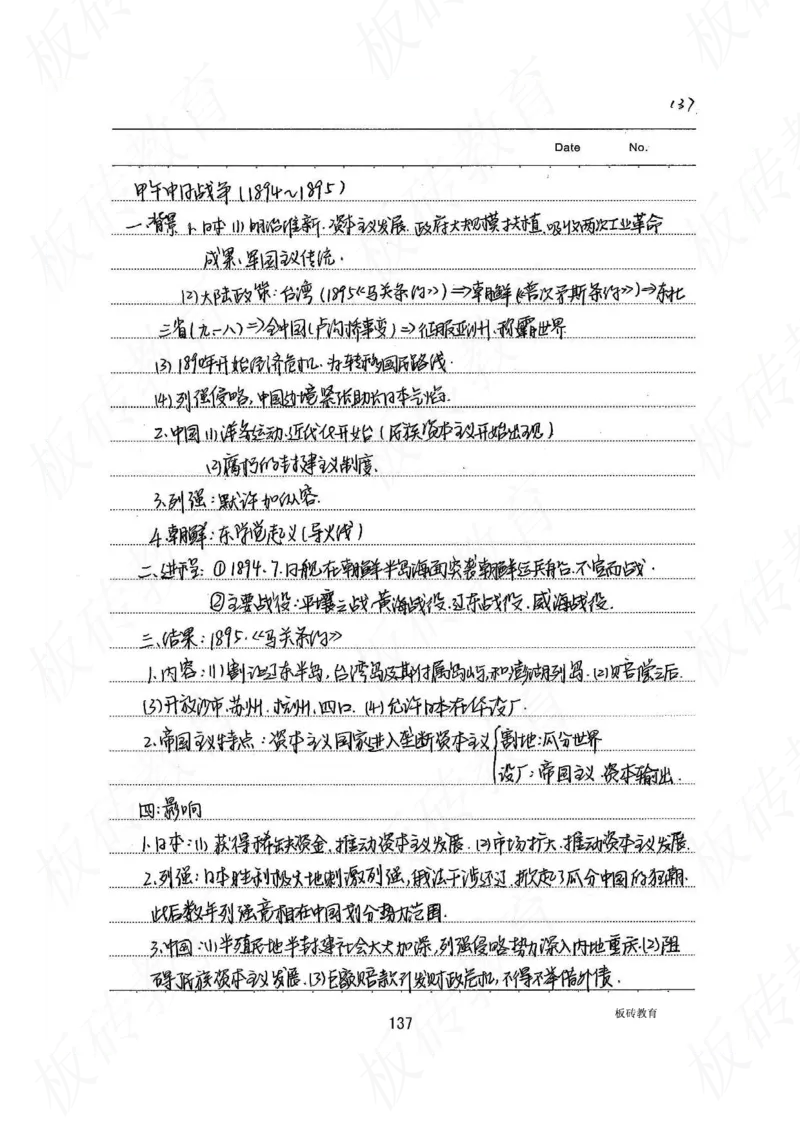 137
Date No.
甲午中日战争(1894~1895)
一.背景 1.日本 (1)明治维新.资本主义发展.政府大规模扶植,吸收两次工业革命
成果,军国主义传统.
(2)大陆政策:台湾(1895《马关条约》)⇒朝鲜(《首次矛斯条约》)⇒东北
三省(九一八)⇒全中国(卢沟桥事变)⇒征服亚洲.称霸世界
(3)1890年开始经济危机.为转移国民路线.
(4)列强侵略,中国边境紧张助长日本气焰.
2.中国(1)洋务运动.近代化开始(民族资本主义开始出现)
(2)腐朽的封建主义制度.
3.列强:默许加纵容.
4.朝鲜:东学党起义(导火线)
二.进程:①1894.7.日舰在朝鲜半岛海面突袭朝鲜运兵船.不宣而战.
②主要战役:平壤之战.黄海战役.辽东战役.威海战役.
三.结果:1895.《马关条约》
1.内容:(1)割让辽东半岛,台湾岛及其附属岛屿,和澎湖列岛.(2)赔偿二亿.
(3)开放沙市.苏州.杭州.四口.(4)允许日本在华设厂.
2.帝国主义特点:资本主义国家进入垄断资本主义{割地:瓜分世界
设厂:帝国主义 资本输出.
四:影响
1.日本:(1)获得稀缺资金,推动资本主义发展.(2)市场扩大.推动资本主义发展.
2.列强:日本胜利极大地刺激列强,俄法干涉还辽.掀起了瓜分中国的狂潮.
此后数年列强竞相在中国划分势力范围.
3.中国:(1)半殖民地半封建社会大大加深,列强侵略势力深入内地重庆.(2)阻
碍民族资本主义发展.(3)巨额赔款引发财政危机,不得不举借外债.
板砖教育
137